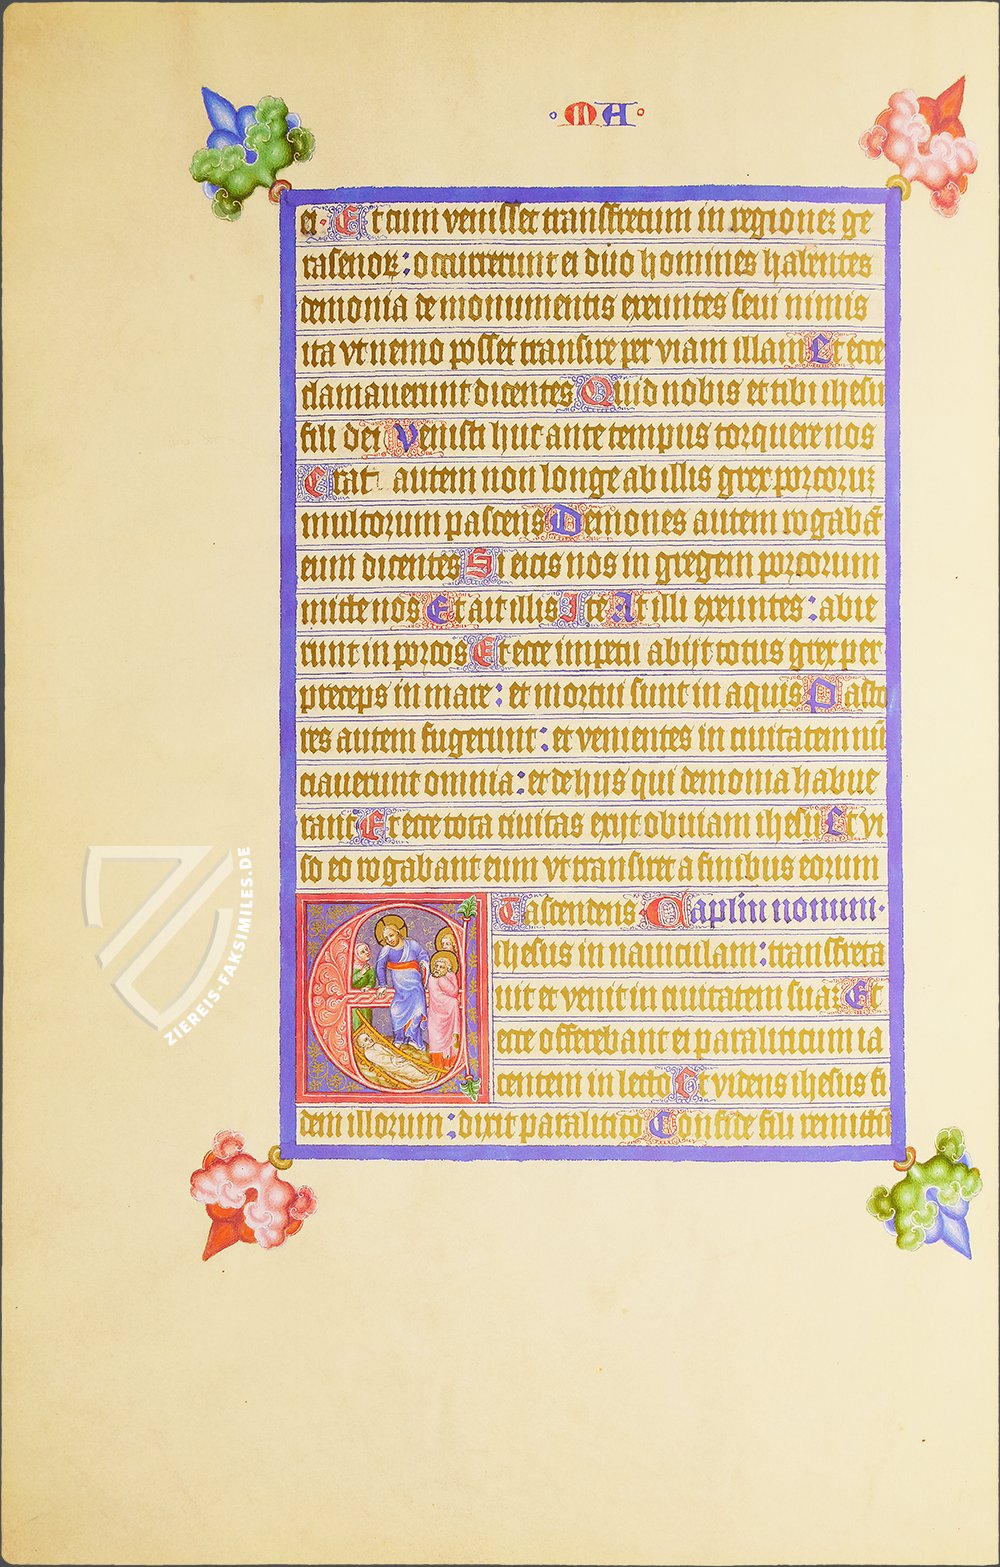 · M A ·
ei · Et cum venisset transfretum in regioneꝫ ge
rasenoꝝ : occurrerunt ei duo homines habentes
demonia de monumentis exeuntes seui nimis
ita vt nemo posset transire per viam illam Et ecce
clamauerunt dicentes Quid nobis et tibi ihesu
fili dei Venisti huc ante tempus torquere nos
Erat autem non longe ab illis grex porcoruꝫ
multorum pascens Demones autem rogabāt
eum dicentes Si eicis nos in gregem porcorum
mitte nos Et ait illis Ite At illi exeuntes : abie
runt in porcos Et ecce impetu abijt totus grex per
preceps in mare : et mortui sunt in aquis Pasto
res autem fugerunt : et venientes in ciuitatem nū
ciauerunt omnia : et de hijs qui demonia habue
rant Et ecce tota ciuitas exijt obuiam ihesu Et vi
so eo rogabant eum vt transiret a finibus eorum
E Tascendens Caplm nonum ·
ihesus in nauiculam : transfreta
uit et venit in ciuitatem suaꝫ Et
ecce offerebant ei paraliticum ia
centem in lecto Et videns ihesus fi
dem illorum : dixit paralitico Confide fili remittū
ZIEREIS-FAKSIMILES.DE